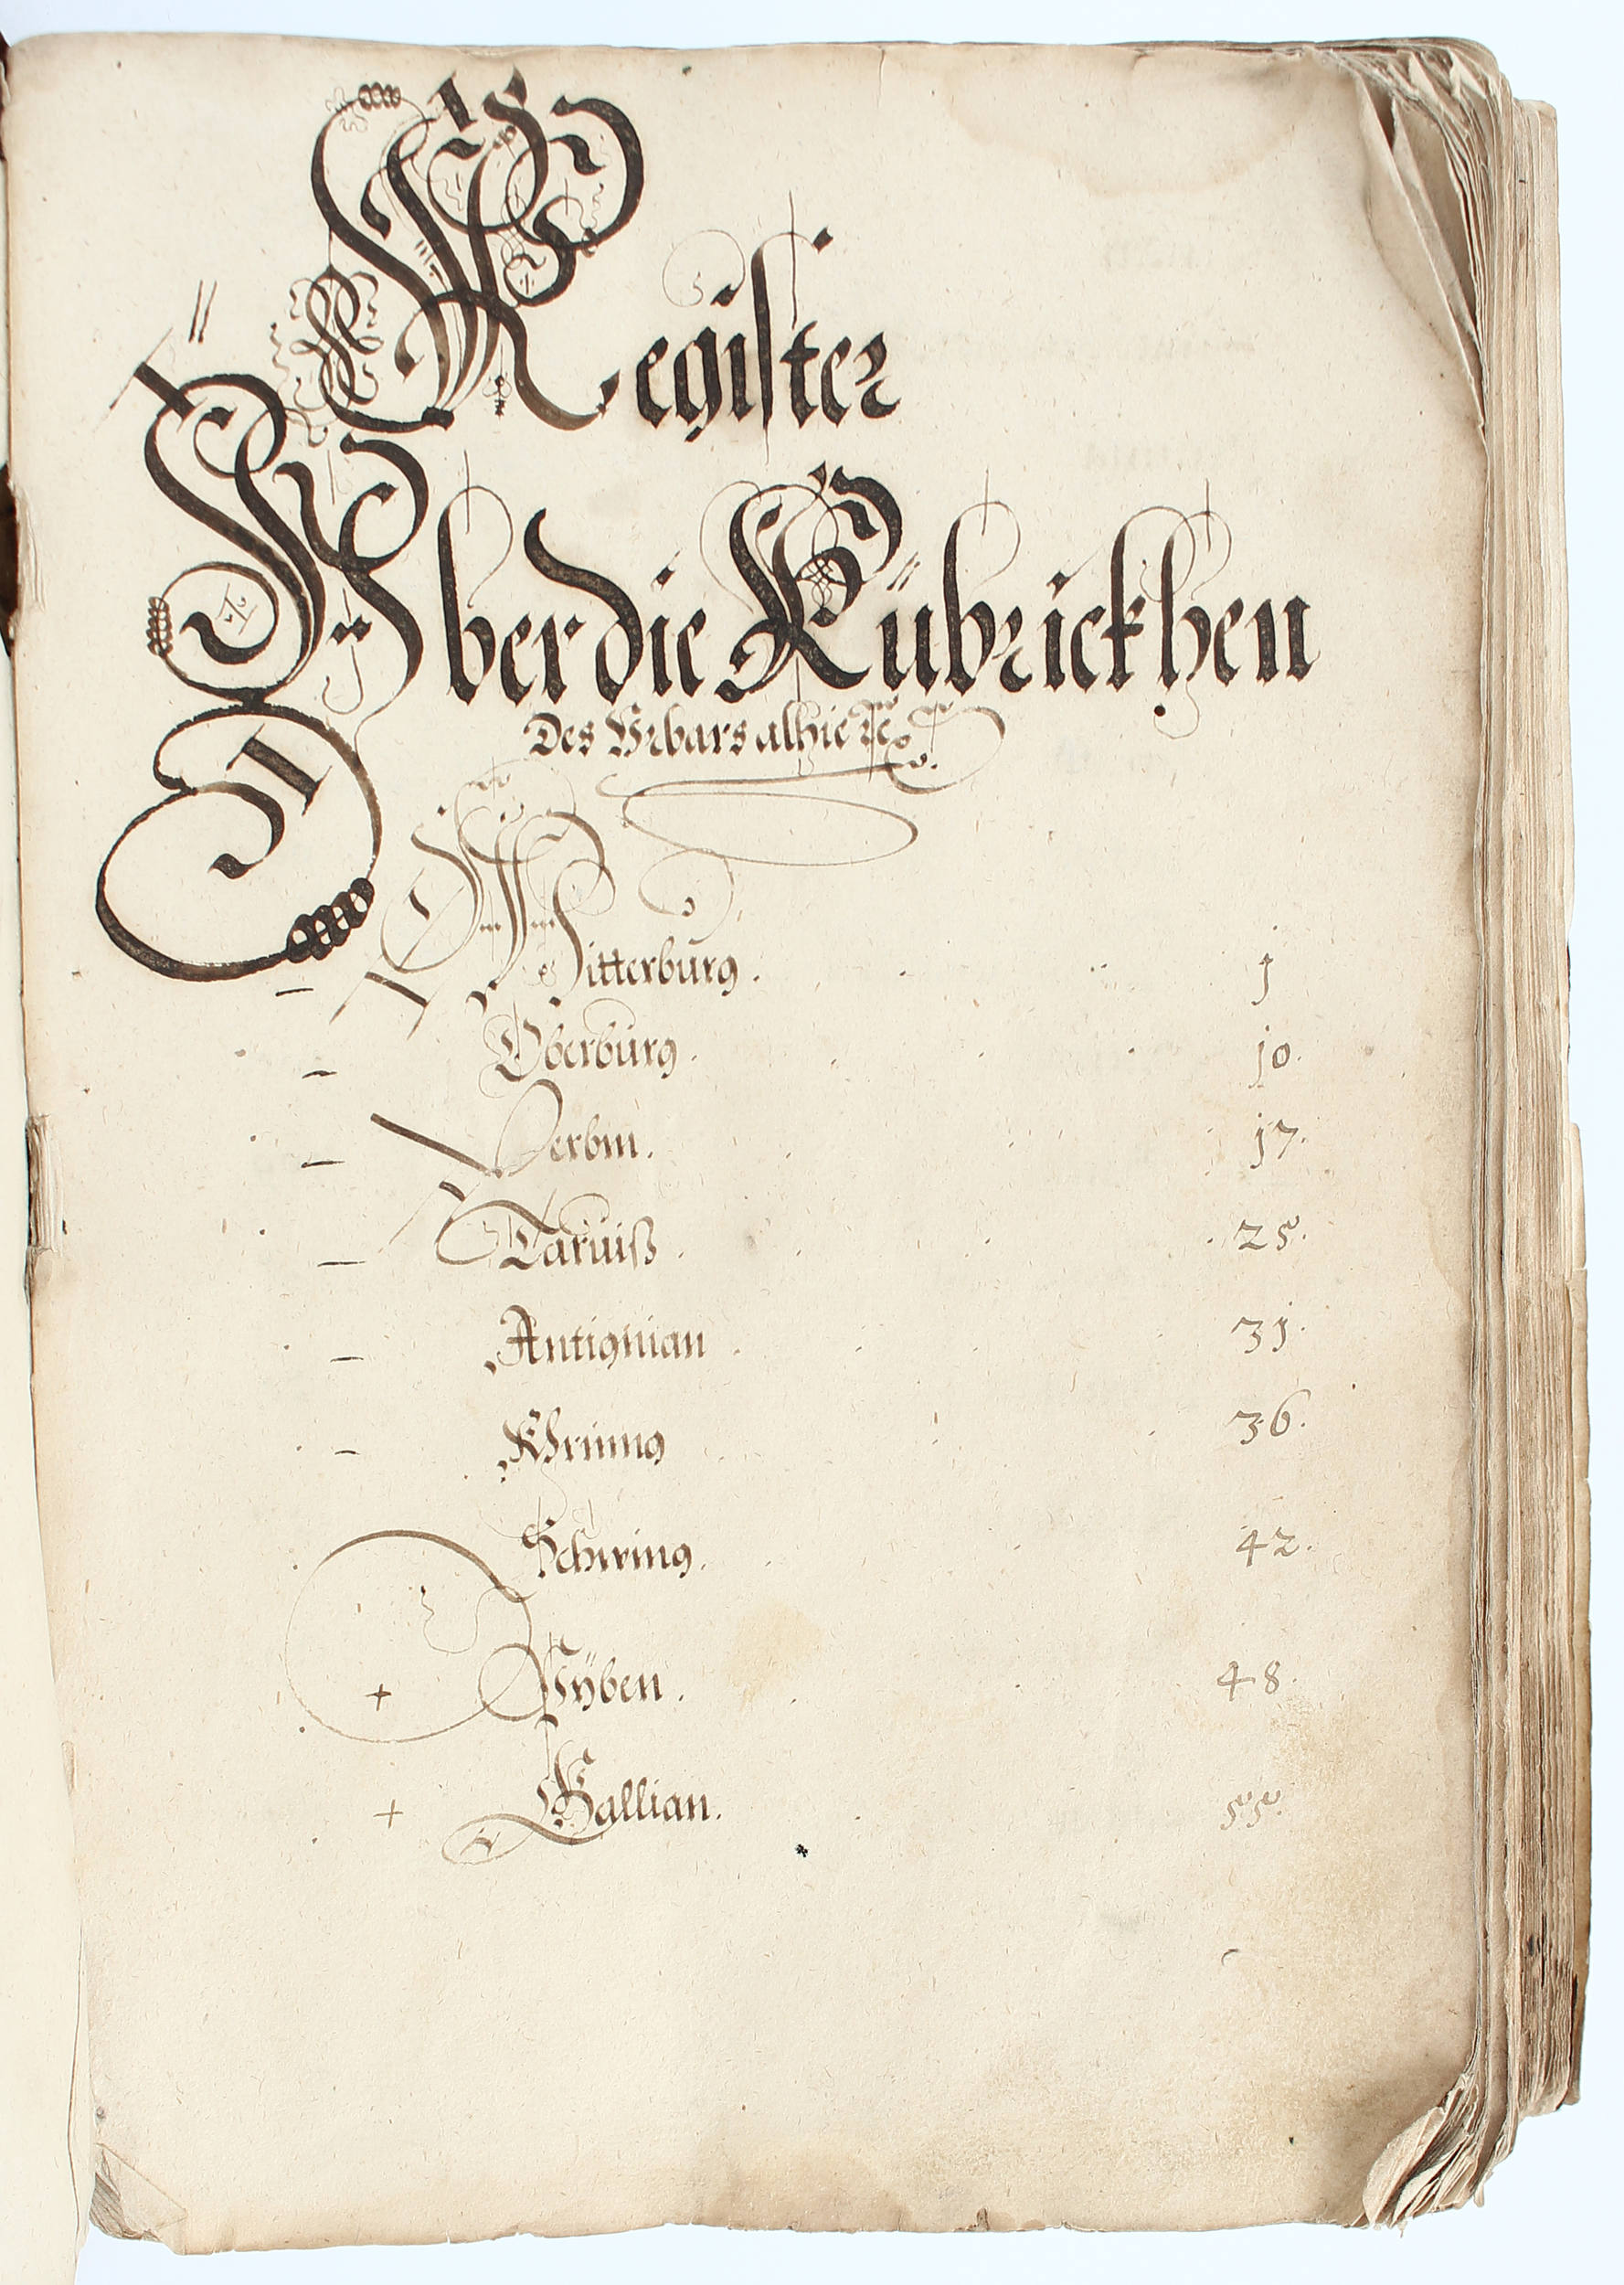 Register
Vber die Rübrickhen
Des Vrbars alhie ꝛc
Mitterburg. 1
Oberburg. 10.
Verbin. 17.
Taruiß. 25.
Antignian. 31.
Khrinng 36.
Schwing. 42.
Pÿben. 48.
Gallian. 55.